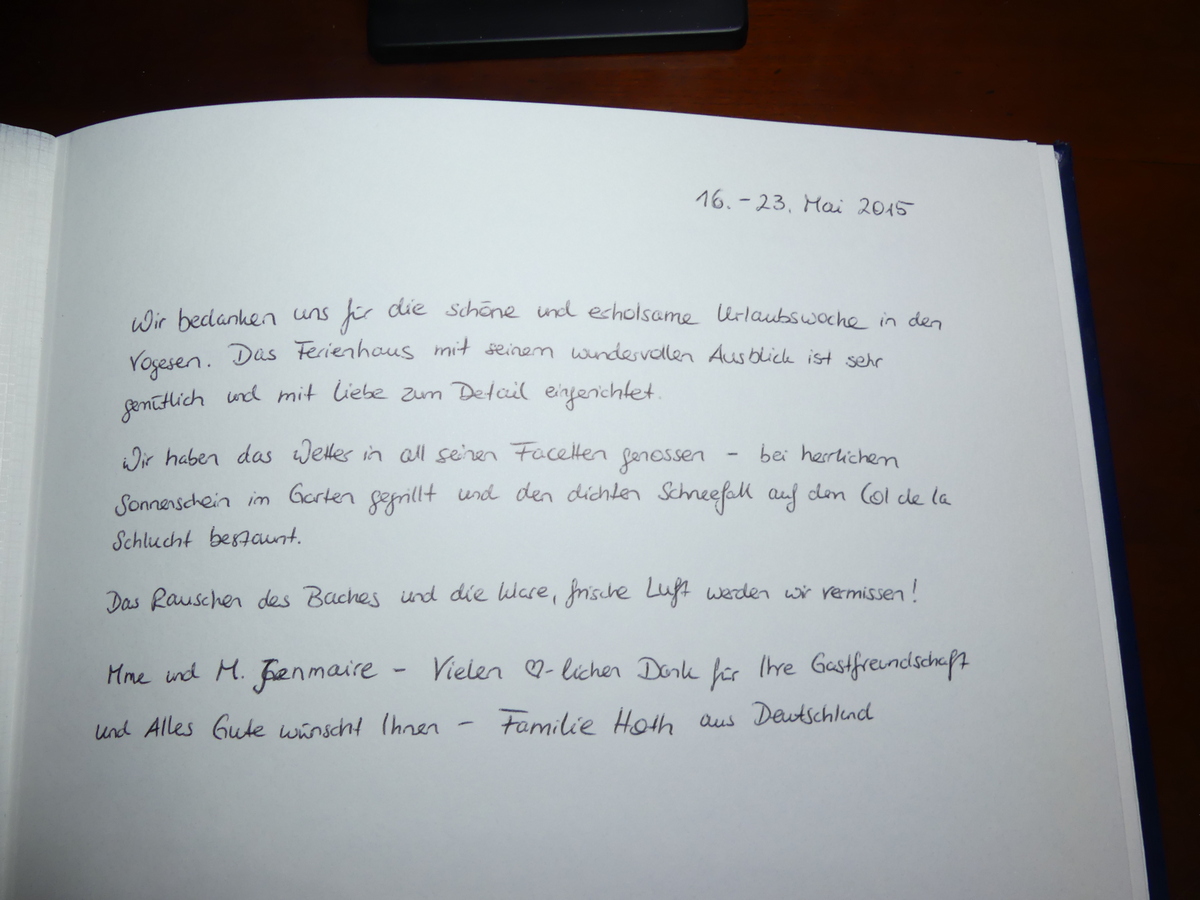 16. - 23. Mai 2015
Wir bedanken uns für die schöne und erholsame Urlaubswoche in den
Vogesen. Das Ferienhaus mit seinem wundervollen Ausblick ist sehr
gemütlich und mit Liebe zum Detail eingerichtet.
Wir haben das Wetter in all seinen Facetten genossen - bei herrlichem
Sonnenschein im Garten gegrillt und den dichten Schneefall auf dem Col de la
Schlucht bestaunt.
Das Rauschen des Baches und die klare, frische Luft werden wir vermissen!
Mme und M. Jeanmaire - Vielen ♡-lichen Dank für Ihre Gastfreundschaft
und Alles Gute wünscht Ihnen - Familie Hoth aus Deutschland